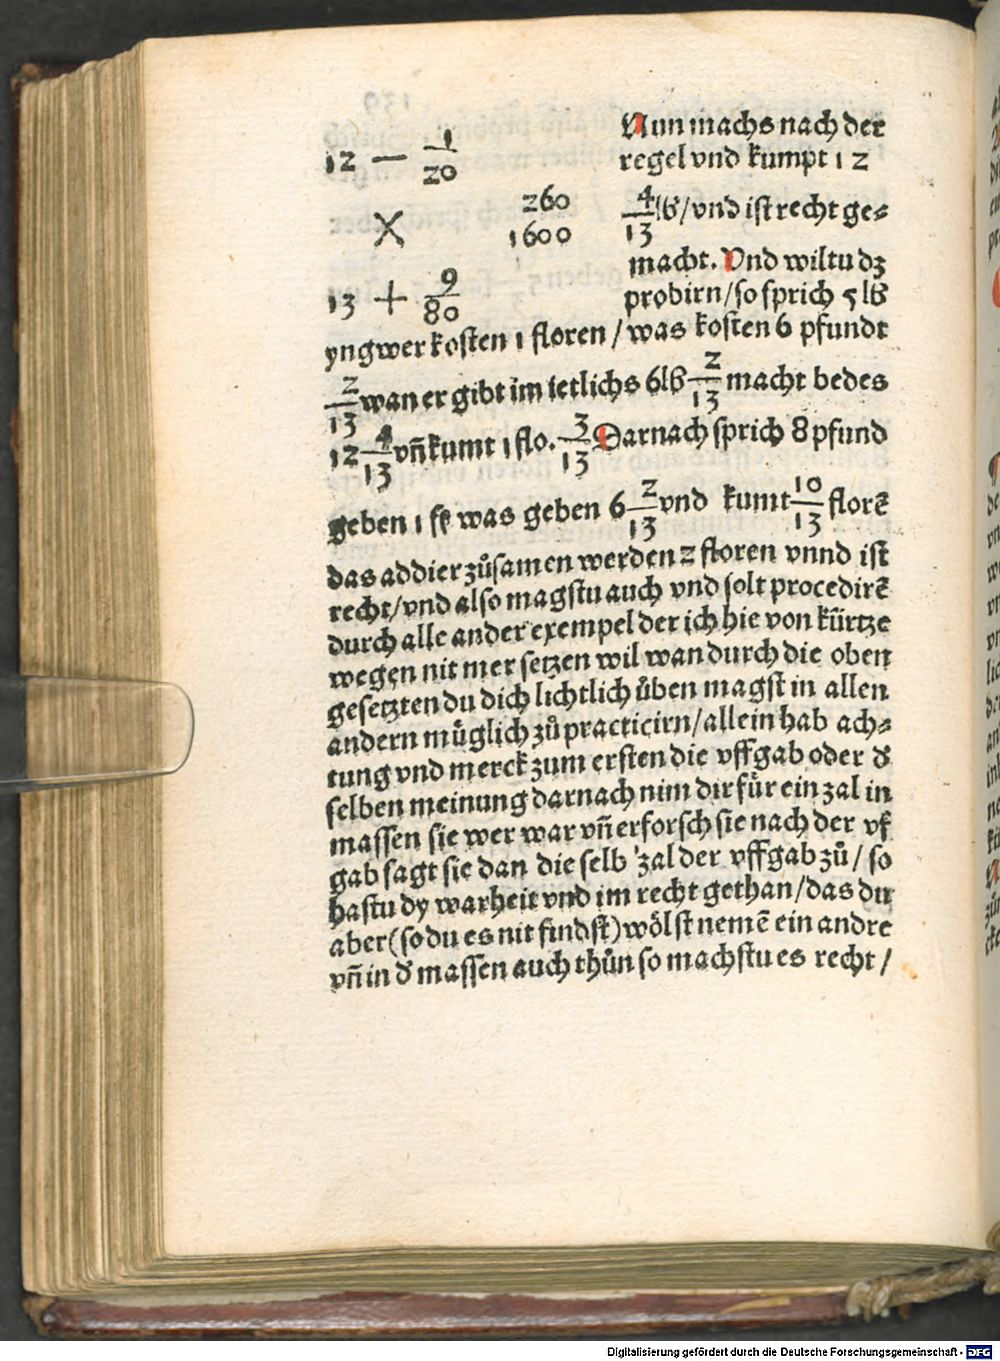 Nun machs nach der
12 — 1/20 regel vnd kumpt 12
260 4/13 lb/vnd ist recht ge⸗
X 1600
macht. Vnd wiltu dz
13 + 9/80 probirn/so sprich 5 lb
yngwer kosten 1 floren/was kosten 6 pfundt
2/13 wan er gibt im ietlichs 6lb 2/13 macht bedes
12 4/13 vn̄ kumt 1 flo. 3/13 Darnach sprich 8 pfund
geben 1 fl was geben 6 2/13 vnd kumt 10/13 florē
das addier zůsamen werden 2 floren vnnd ist
recht/vnd also magstu auch vnd solt procedirē
durch alle ander exempel der ich hie von kürtze
wegen nit mer setzen wil wan durch die oben
gesetzten du dich lichtlich ůben magst in allen
andern müglich zů practicirn/allein hab ach⸗
tung vnd merck zum ersten die vffgab oder d̕
selben meinung darnach nim dir für ein zal in
massen sie wer war vn̄ erforsch sie nach der vf
gab sagt sie dan die selb zal der vffgab zů/so
hastu dy warheit vnd im recht gethan/das du
aber(so du es nit findst)wölst nemē ein andre
vn̄ in d̕ massen auch thůn so machstu es recht/
Digitalisierung gefördert durch die Deutsche Forschungsgemeinschaft - DFG